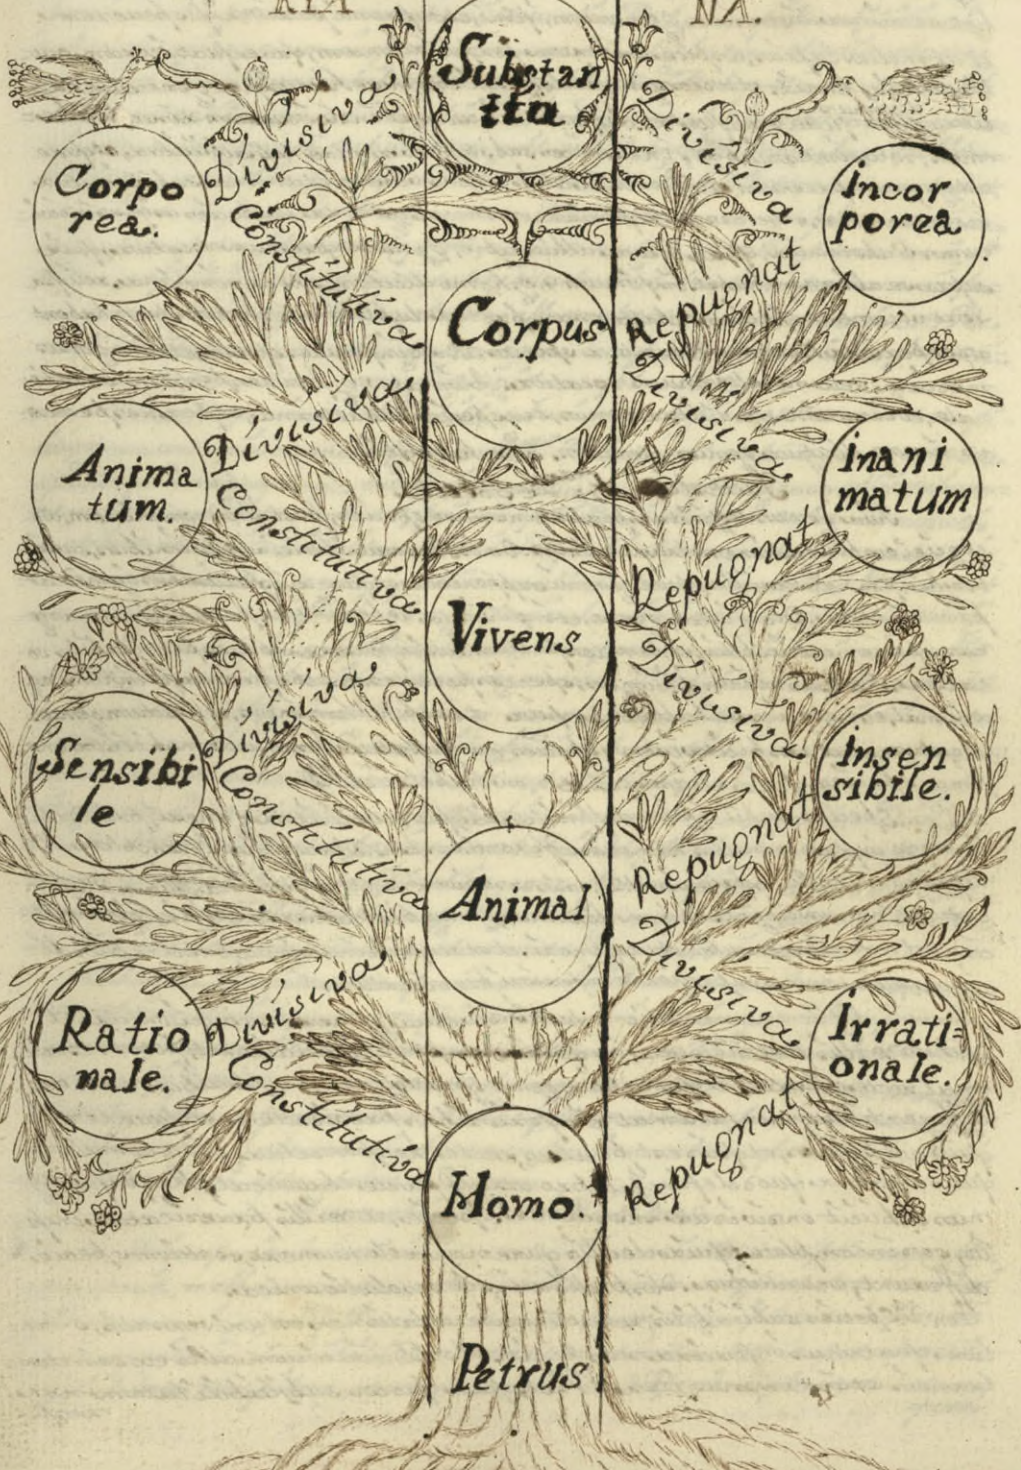 RIA NA.
Substan
tia
Divisiva Divisiva
Corpo
rea.
incor
porea
Constitutiva Repugnat
Corpus
Divisiva Divisiva
Anima
tum.
inani
matum
Constitutiva Repugnat
Vivens
Divisiva Divisiva
Sensibi
le
insen
sibile.
Constitutiva Repugnat
Animal
Divisiva Divisiva
Ratio
nale.
Irrati=
onale.
Constitutiva Repugnat
Homo.
Petrus